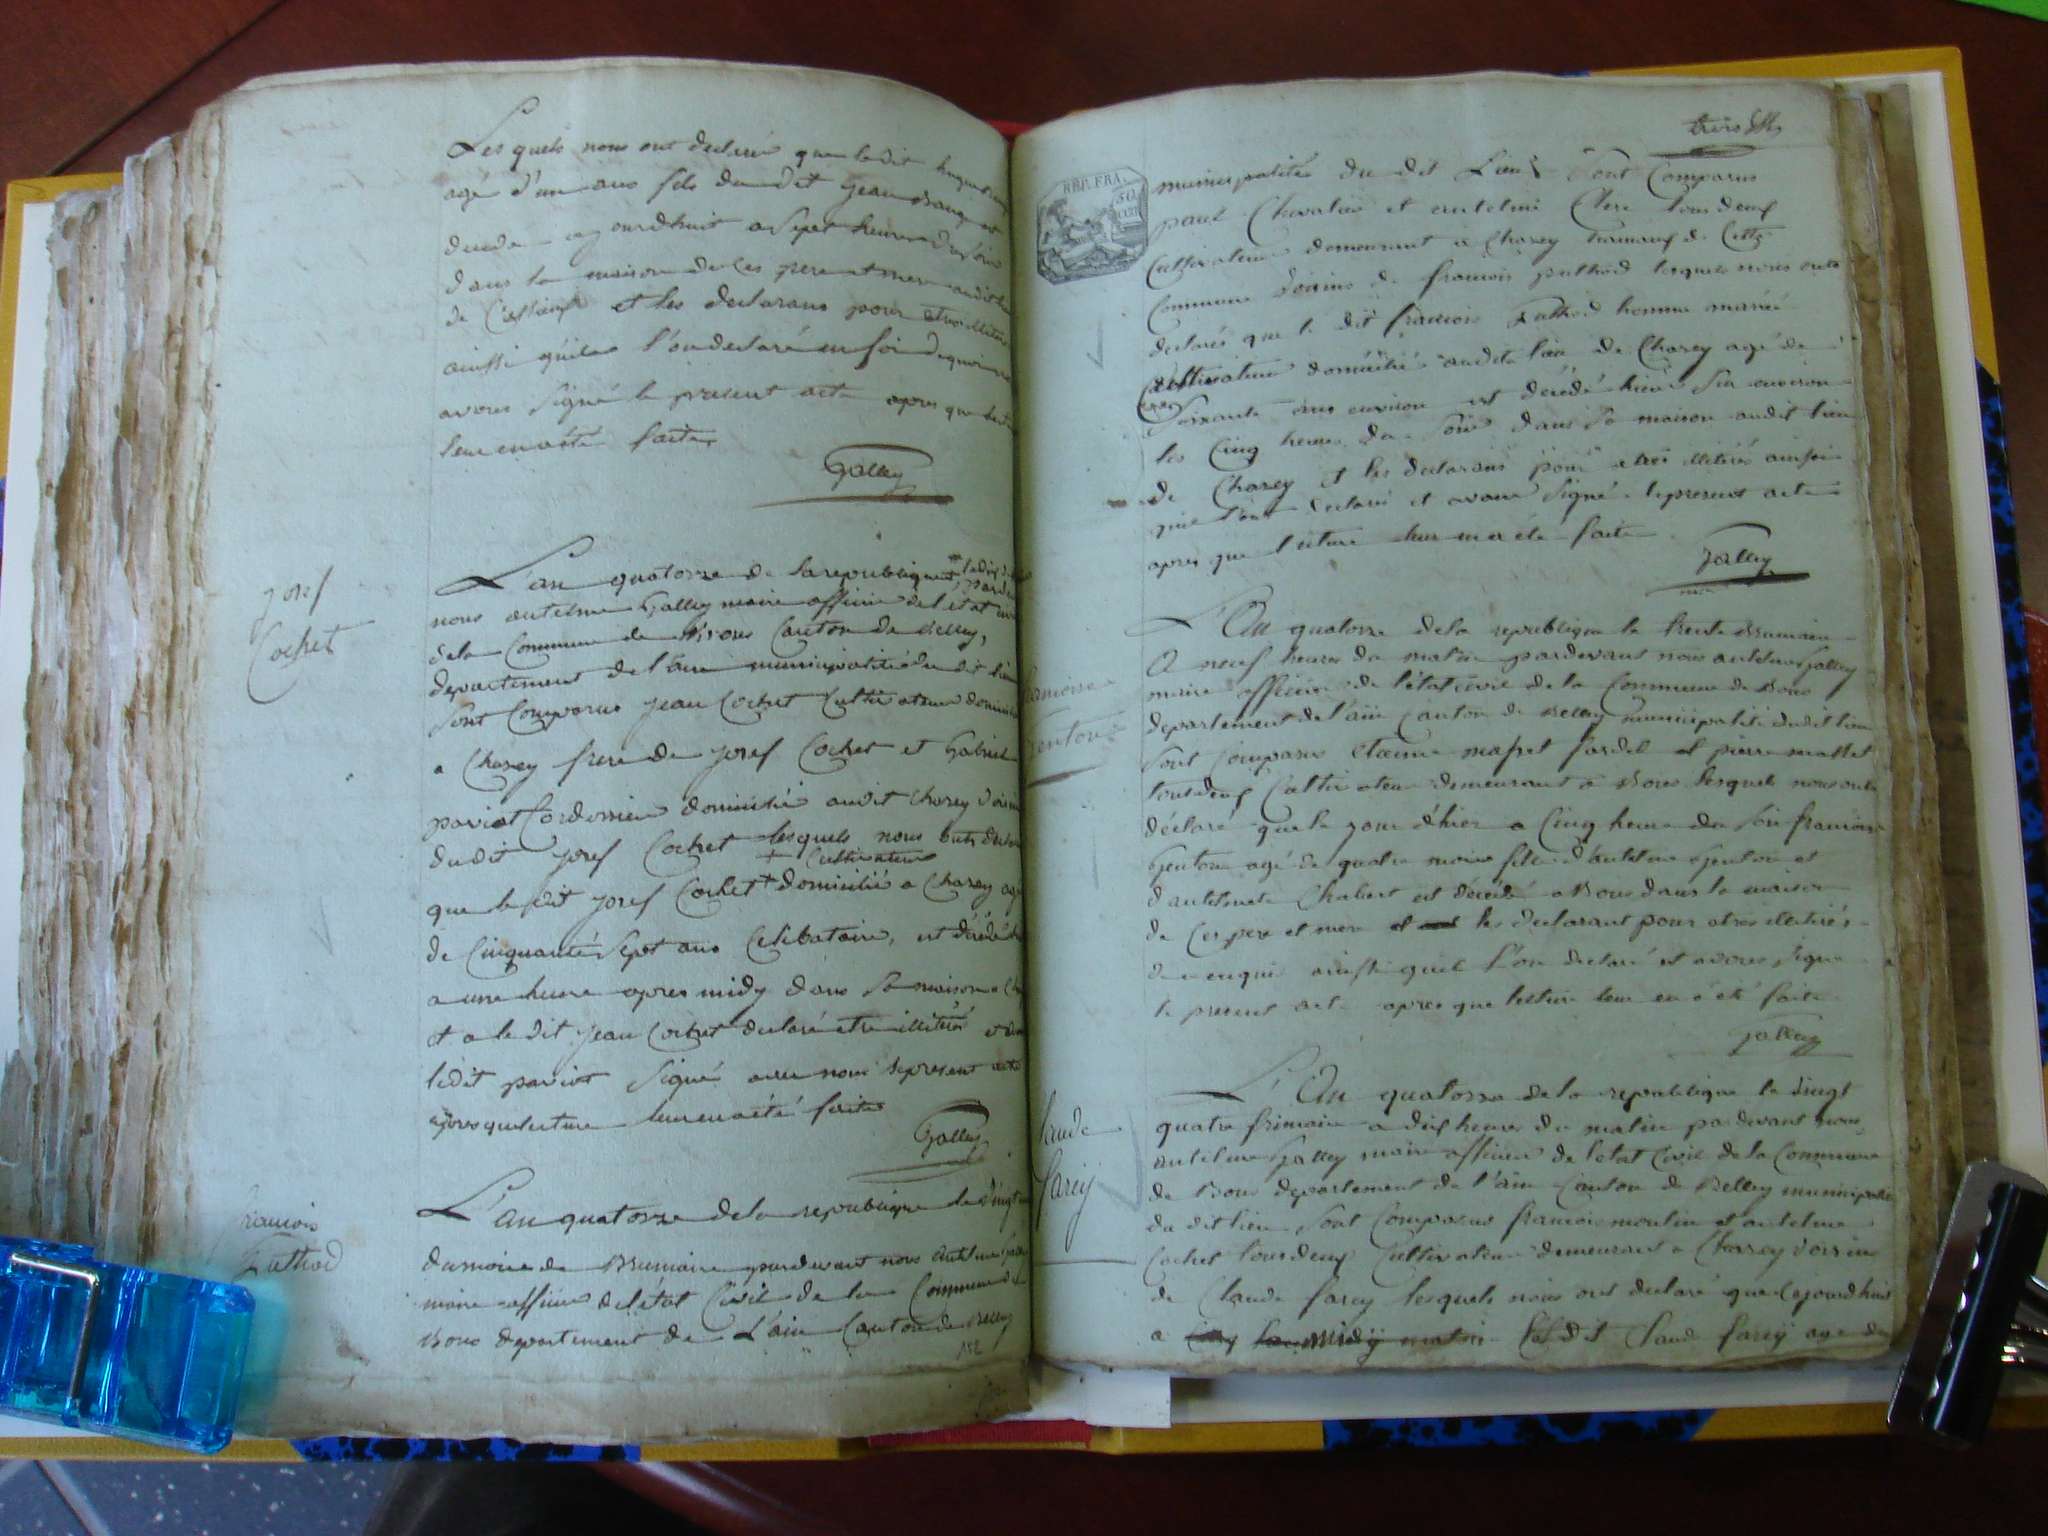 Lesquels nous ont declaré que ledit
agé d'un ans fils du dit jean
decede aujourdhuit a Sept heures du soir
dans la maison de Ces pere et mere audit lieu
de et les declarans pour etres
ainssi quils l'on declaré en foi de quoi
avons Signé le present acte apres que
leur en a été faites
Galley
josef
Cochet
L'an quatorze de la republique
nous antelme Galley maire officier de l'état
de la Commune de Vrous Canton de Belley,
departement de l'ain municipalité du dit lieu
Sont Comparus jean Cochet Cultivateur
a Chazey frere de josef Cochet et Gabriel
paviot Cordonnier domicilié audit Chazey
dudit josef Cochet lesquels nous ont
+ Cultivateur
que le dit josef Cochet + domicilié a Chazey agé
de Cinquante Sept ans Celibataire, est décédé
a une heure apres midy dans Sa maison a
et a le dit jean Cochet declaré etre illiteré et
ledit paviot Signé avec nous le present acte
apres que lecture leur en a été faites
Galley
francois
Guthod
L'an quatorze de la republique le vingt
du moire de Brumaire pardevant nous antelme
maire officier de l'état Civil de la Commune de
departement de L'ain Canton de Belley
152
trois
REP. FRA.
50
municipalité du dit Lieu Sont Comparus
paul Chevalier et antelme Clerc tous deux
Cultivateur demeurant a Chazey hamaux de Cette
Commune Voisins de francois Guthod lesquels nous onts
declarés que le dit francois Guthod homme marié
Cultivateur domicilié audit lieu de Chazey agé de
Soixante ans environ est décédé hier Sur environ
les Cinq heures du Soir dans Sa maison audit lieu
de Chazey et les declarans pour etres illiterés ainssi
quil l'ont declaré et avons Signé le present acte
apres que lecture leur en a été faite
Galley
francoise
Genton
L'An quatorze de la republique le trente Brumaire
A neuf heures du matin pardevant nous antelme Galley
maire officier de l'état civil de la Commune de
departement de l'ain Canton de Belley municipalité dudit lieu
Sont Comparus Etienne massot fardel et pierre mallet
tous deux Cultivateur demeurant a lesquels nous onts
déclaré que le jour d'hier a Cinq heure du Soir francoise
Genton agé de quatre mois fille d'antelme Genton et
d'antelmete Chabert est décédé a dans la maison
de Ces pere et mere et les declarant pour etres illiterés
de enquis ainssi quil l'on declaré et avons Signé
le present acte apres que lecture leur en a été faite
Galley
Claude
farcy
L'An quatorze de la republique le vingt
quatre frimaire a dix heures du matin pardevant nous
antelme Galley maire officier de l'etat Civil de la Commune
de departement de l'ain Canton de Belley municipalité
du dit lieu Sont Comparus francois moulin et antelme
Cochet tous deux Cultivateur demeurant a Chazey voisin
de Claude farcy lesquels nous ont declaré que Cejourdhuit
a Cinq midy matin ledit Claud farcy agé de